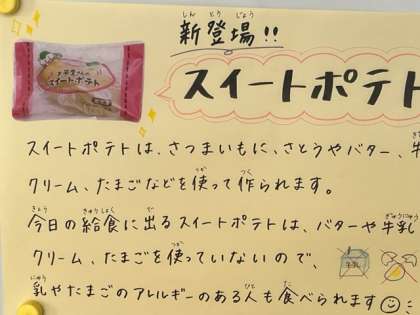 新登場!!
スイートポテト
お芋屋さんの
スイートポテト
スイートポテトは、さつまいもに、さとうやバター、牛
クリーム、たまごなどを使って作られます。
今日の給食に出るスイートポテトは、バターや牛乳
クリーム、たまごを使っていないので、
牛乳
乳やたまごのアレルギーのある人も食べられます